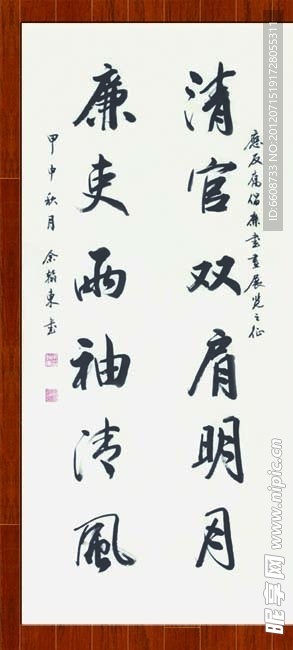 應反腐倡廉書畫展览之征
清官双肩明月
廉吏兩袖清風
甲申秋月 余翰東書
ID:6608733 NO:20120715191728055311
www.nipic.cn
昵享网